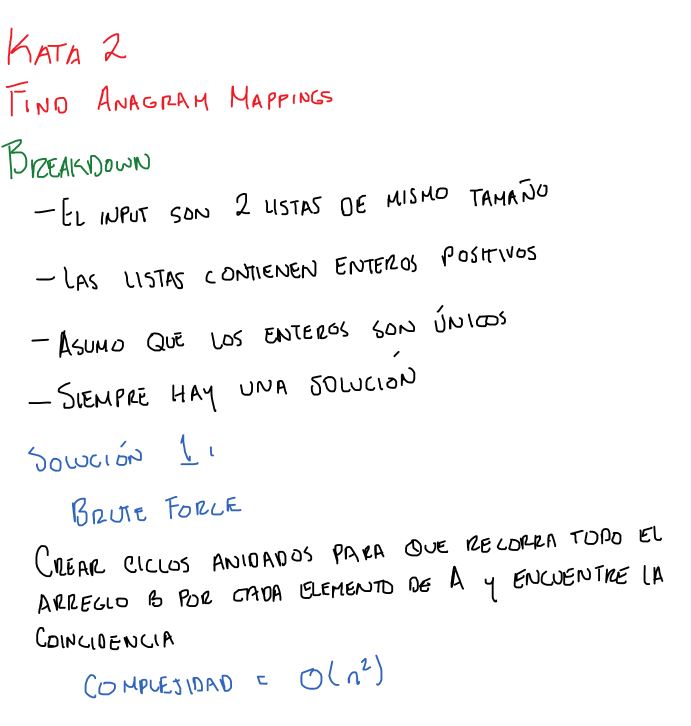 KATA 2
FIND ANAGRAM MAPPINGS
BREAKDOWN
- EL INPUT SON 2 LISTAS DE MISMO TAMAÑO
- LAS LISTAS CONTIENEN ENTEROS POSITIVOS
- ASUMO QUE LOS ENTEROS SON ÚNICOS
- SIEMPRE HAY UNA SOLUCIÓN
SOLUCIÓN 1.
BRUTE FORCE
CREAR CICLOS ANIDADOS PARA QUE RECORRA TODO EL
ARREGLO B POR CADA ELEMENTO DE A Y ENCUENTRE LA
COINCIDENCIA
COMPLEJIDAD = O(n²)